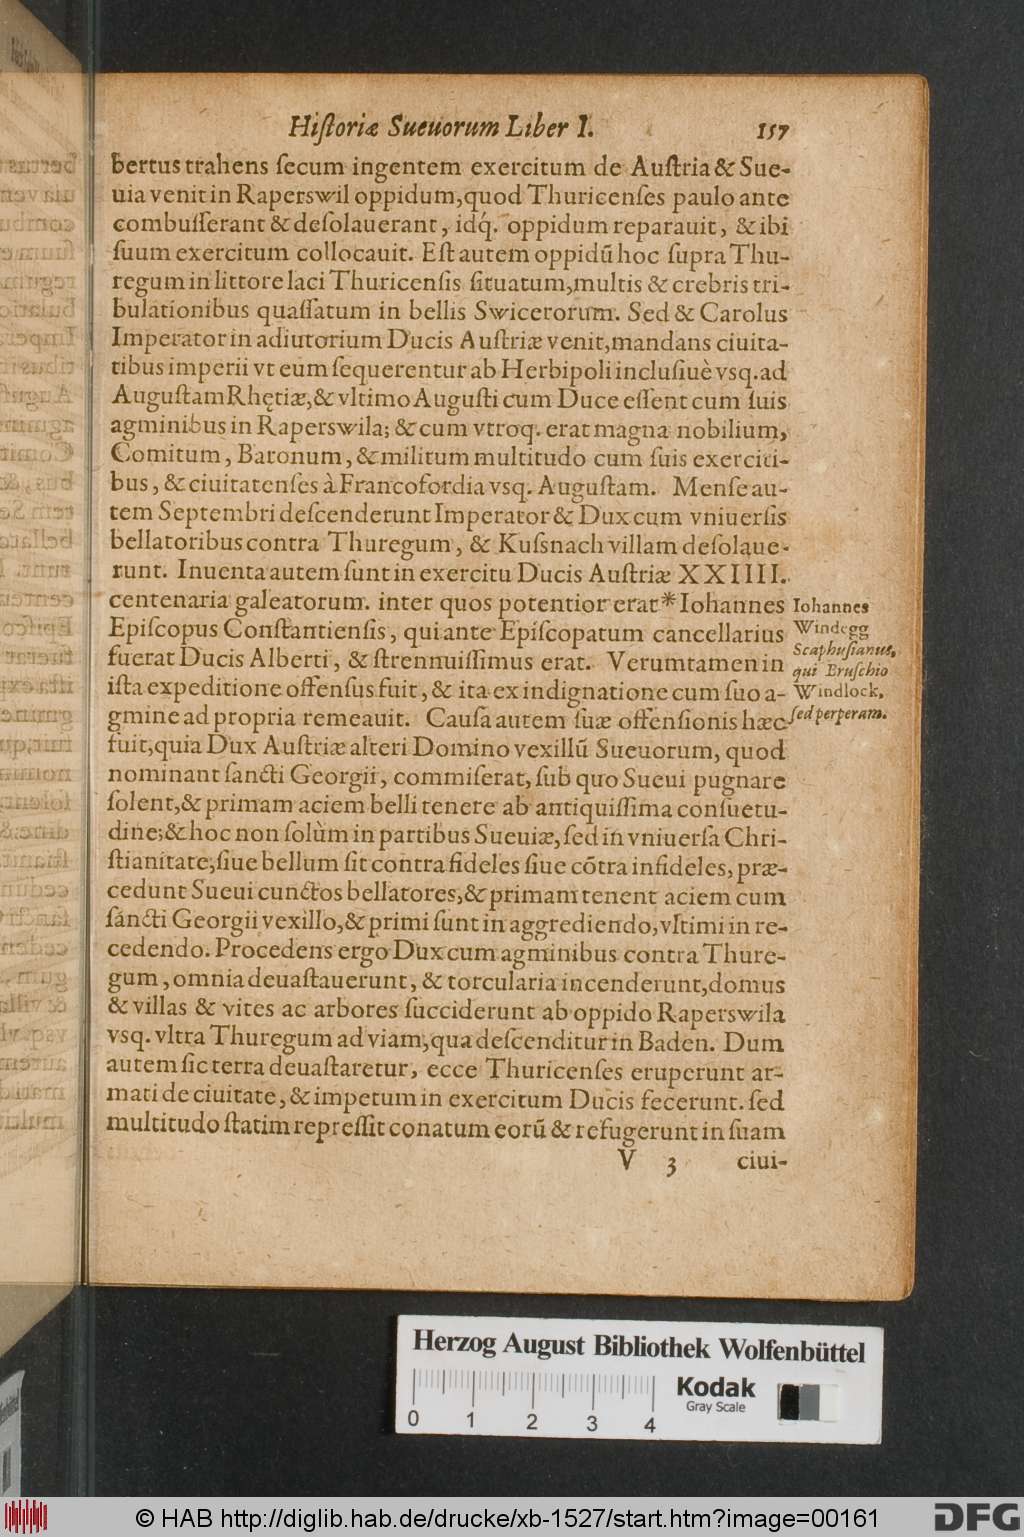 Hiſtoriæ Sueuorum Liber I. 157
bertus trahens ſecum ingentem exercitum de Auſtria & Sue-
uia venit in Raperswil oppidum, quod Thuricenſes paulo ante
combuſſerant & deſolauerant, idq́. oppidum reparauit, & ibi
ſuum exercitum collocauit. Eſt autem oppidū hoc ſupra Thu-
regum in littore laci Thuricenſis ſituatum, multis & crebris tri-
bulationibus quaſſatum in bellis Swicerorum. Sed & Carolus
Imperator in adiutorium Ducis Auſtriæ venit, mandans ciuita-
tibus imperii vt eum ſequerentur ab Herbipoli incluſiuè vsq. ad
Auguſtam Rhętiæ, & vltimo Auguſti cum Duce eſſent cum ſuis
agminibus in Raperswila; & cum vtroq. erat magna nobilium,
Comitum, Baronum, & militum multitudo cum ſuis exerciti-
bus, & ciuitatenſes à Francofordia vsq. Auguſtam. Menſe au-
tem Septembri deſcenderunt Imperator & Dux cum vniuerſis
bellatoribus contra Thuregum, & Kuſsnach villam deſolaue-
runt. Inuenta autem ſunt in exercitu Ducis Auſtriæ XXIIII.
centenaria galeatorum. inter quos potentior erat * Iohannes
Epiſcopus Conſtantienſis, qui ante Epiſcopatum cancellarius
fuerat Ducis Alberti, & ſtrennuiſſimus erat. Verumtamen in
iſta expeditione offenſus fuit, & ita ex indignatione cum ſuo a-
gmine ad propria remeauit. Cauſa autem ſuæ offenſionis hæc
fuit, quia Dux Auſtriæ alteri Domino vexillū Sueuorum, quod
nominant ſancti Georgii, commiſerat, ſub quo Sueui pugnare
ſolent, & primam aciem belli tenere ab antiquiſſima conſuetu-
dine; & hoc non ſolùm in partibus Sueuiæ, ſed in vniuerſa Chri-
ſtianitate, ſiue bellum ſit contra fideles ſiue cōtra infideles, præ-
cedunt Sueui cunctos bellatores, & primam tenent aciem cum
ſancti Georgii vexillo, & primi ſunt in aggrediendo, vltimi in re-
cedendo. Procedens ergo Dux cum agminibus contra Thure-
gum, omnia deuaſtauerunt, & torcularia incenderunt, domus
& villas & vites ac arbores ſucciderunt ab oppido Raperswila
vsq. vltra Thuregum ad viam, qua deſcenditur in Baden. Dum
autem ſic terra deuaſtaretur, ecce Thuricenſes eruperunt ar-
mati de ciuitate, & impetum in exercitum Ducis fecerunt. ſed
multitudo ſtatim repreſſit conatum eorū & refugerunt in ſuam
V 3 ciui-
Iohannes
Windegg
Scaphuſianus,
qui Bruſchio
Windlock,
ſed perperam.
Herzog August Bibliothek Wolfenbüttel
Kodak
Gray Scale
0 1 2 3 4
© HAB http://diglib.hab.de/drucke/xb-1527/start.htm?image=00161
DFG